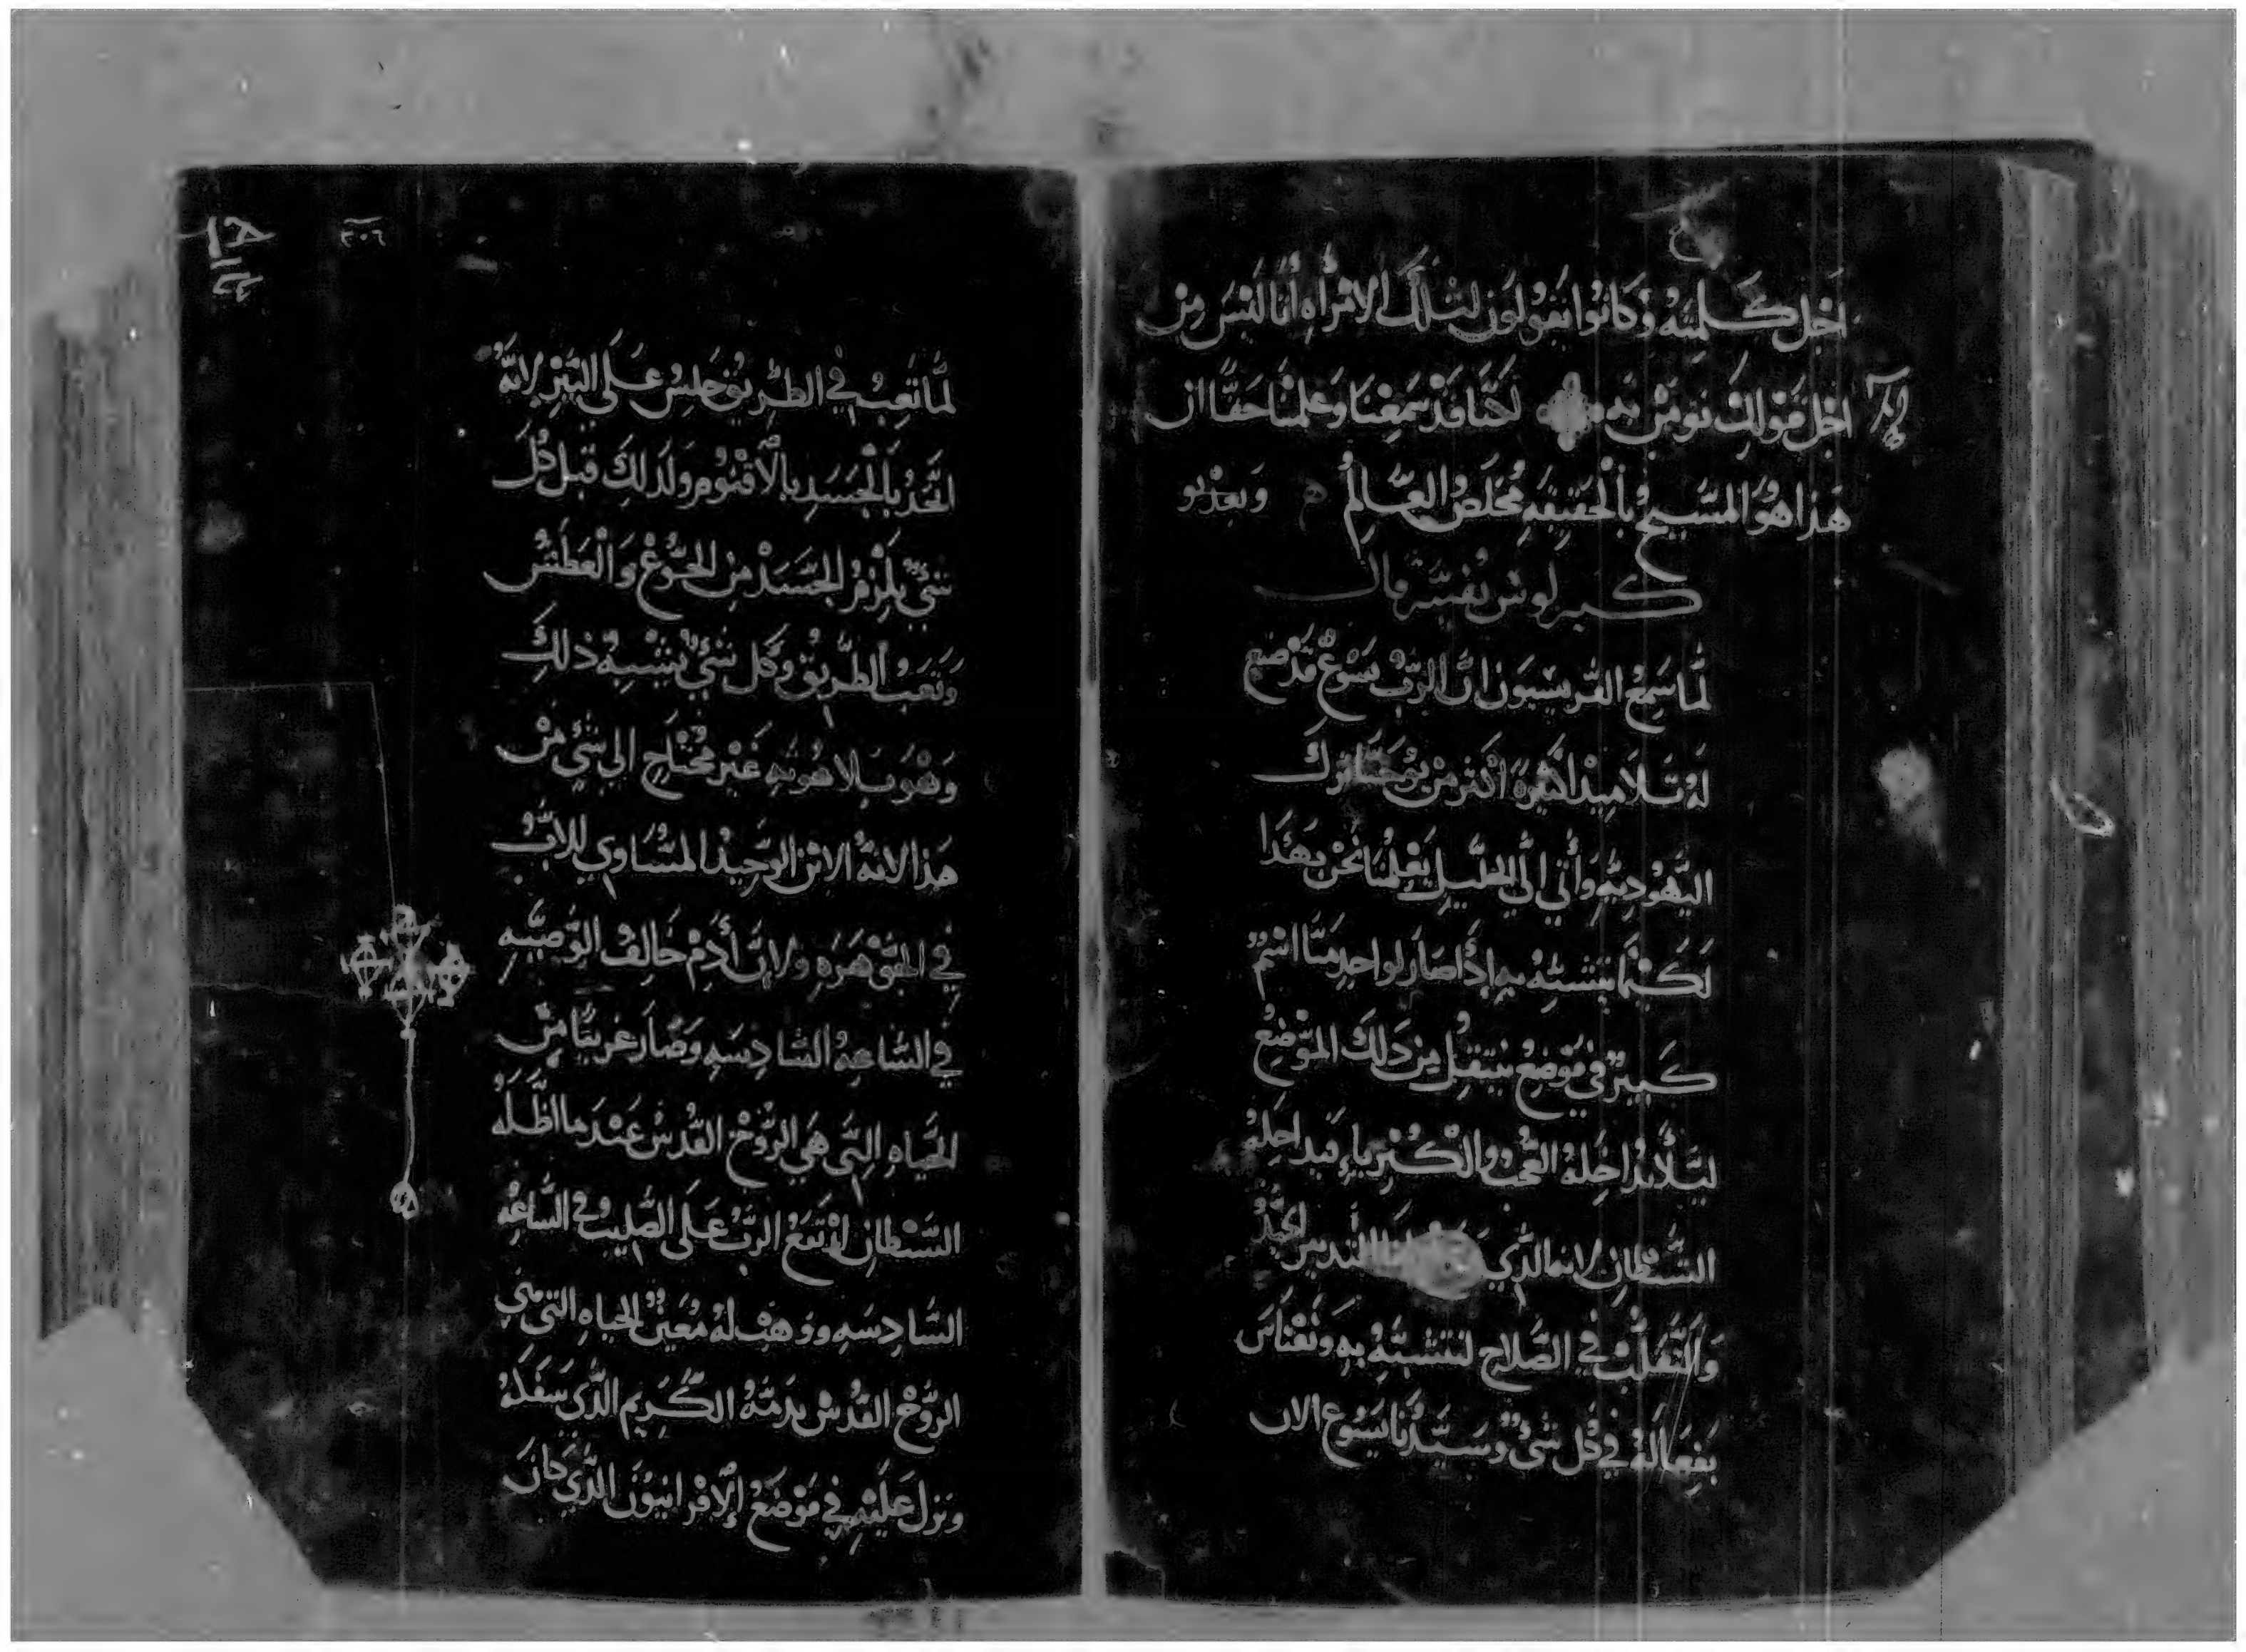 اجل كلمته وكانوا يقولون لتلك الامراه أنا ليس من
اجل قولك نومن به لاننا قد سمعنا وعلمنا حقًا ان
هذا هو المسيح بالحقيقه مخلص العالم
كيرلوش يفسر قال
لما سمع الفريسيون ان الرب يسوع قد صنع
له تلاميذ كثيرة اكثر من يوحنا ترك
اليهوديه وأتي الي الجليل يعلمنا نحن بهذا
لكيما نتشبه به إذا صار لواحد منا اسم
كبير في موضع ينتقل من ذلك الموضع
ليلا يداخله العجب والكبرياء
الشيطان لانه الذي التدبير الجيد
والتقلب في الصلاح لنتشبه به ونقتاس
بفعاله في كل شي وسيدنا يسوع الان
٣٠٦
لما تعب في الطريق جلس على البير لانه
اتحد بالجسد بالأقنوم ولذلك قبل كل
شي يلزم الجسد من الجوع والعطش
وتعب الطريق وكل شي يشبه ذلك
وهو بلاهوته غير محتاج الي شي من
هذا لانه الابن الوحيد المتساوي للاب
في الجوهره ولان أدم خالف الوصيه
في الساعه السادسه وصار غريبًا من
الحياه التي هي الروح القدس عندما اظله
الشيطان ارتفع الرب على الصليب في الساعه
السادسه ووهب له معين الحياه التي هي
الروح القدس بدمه الكريم الذي سفكه
ونزل عليه في موضع الاقرانيون الذي كان